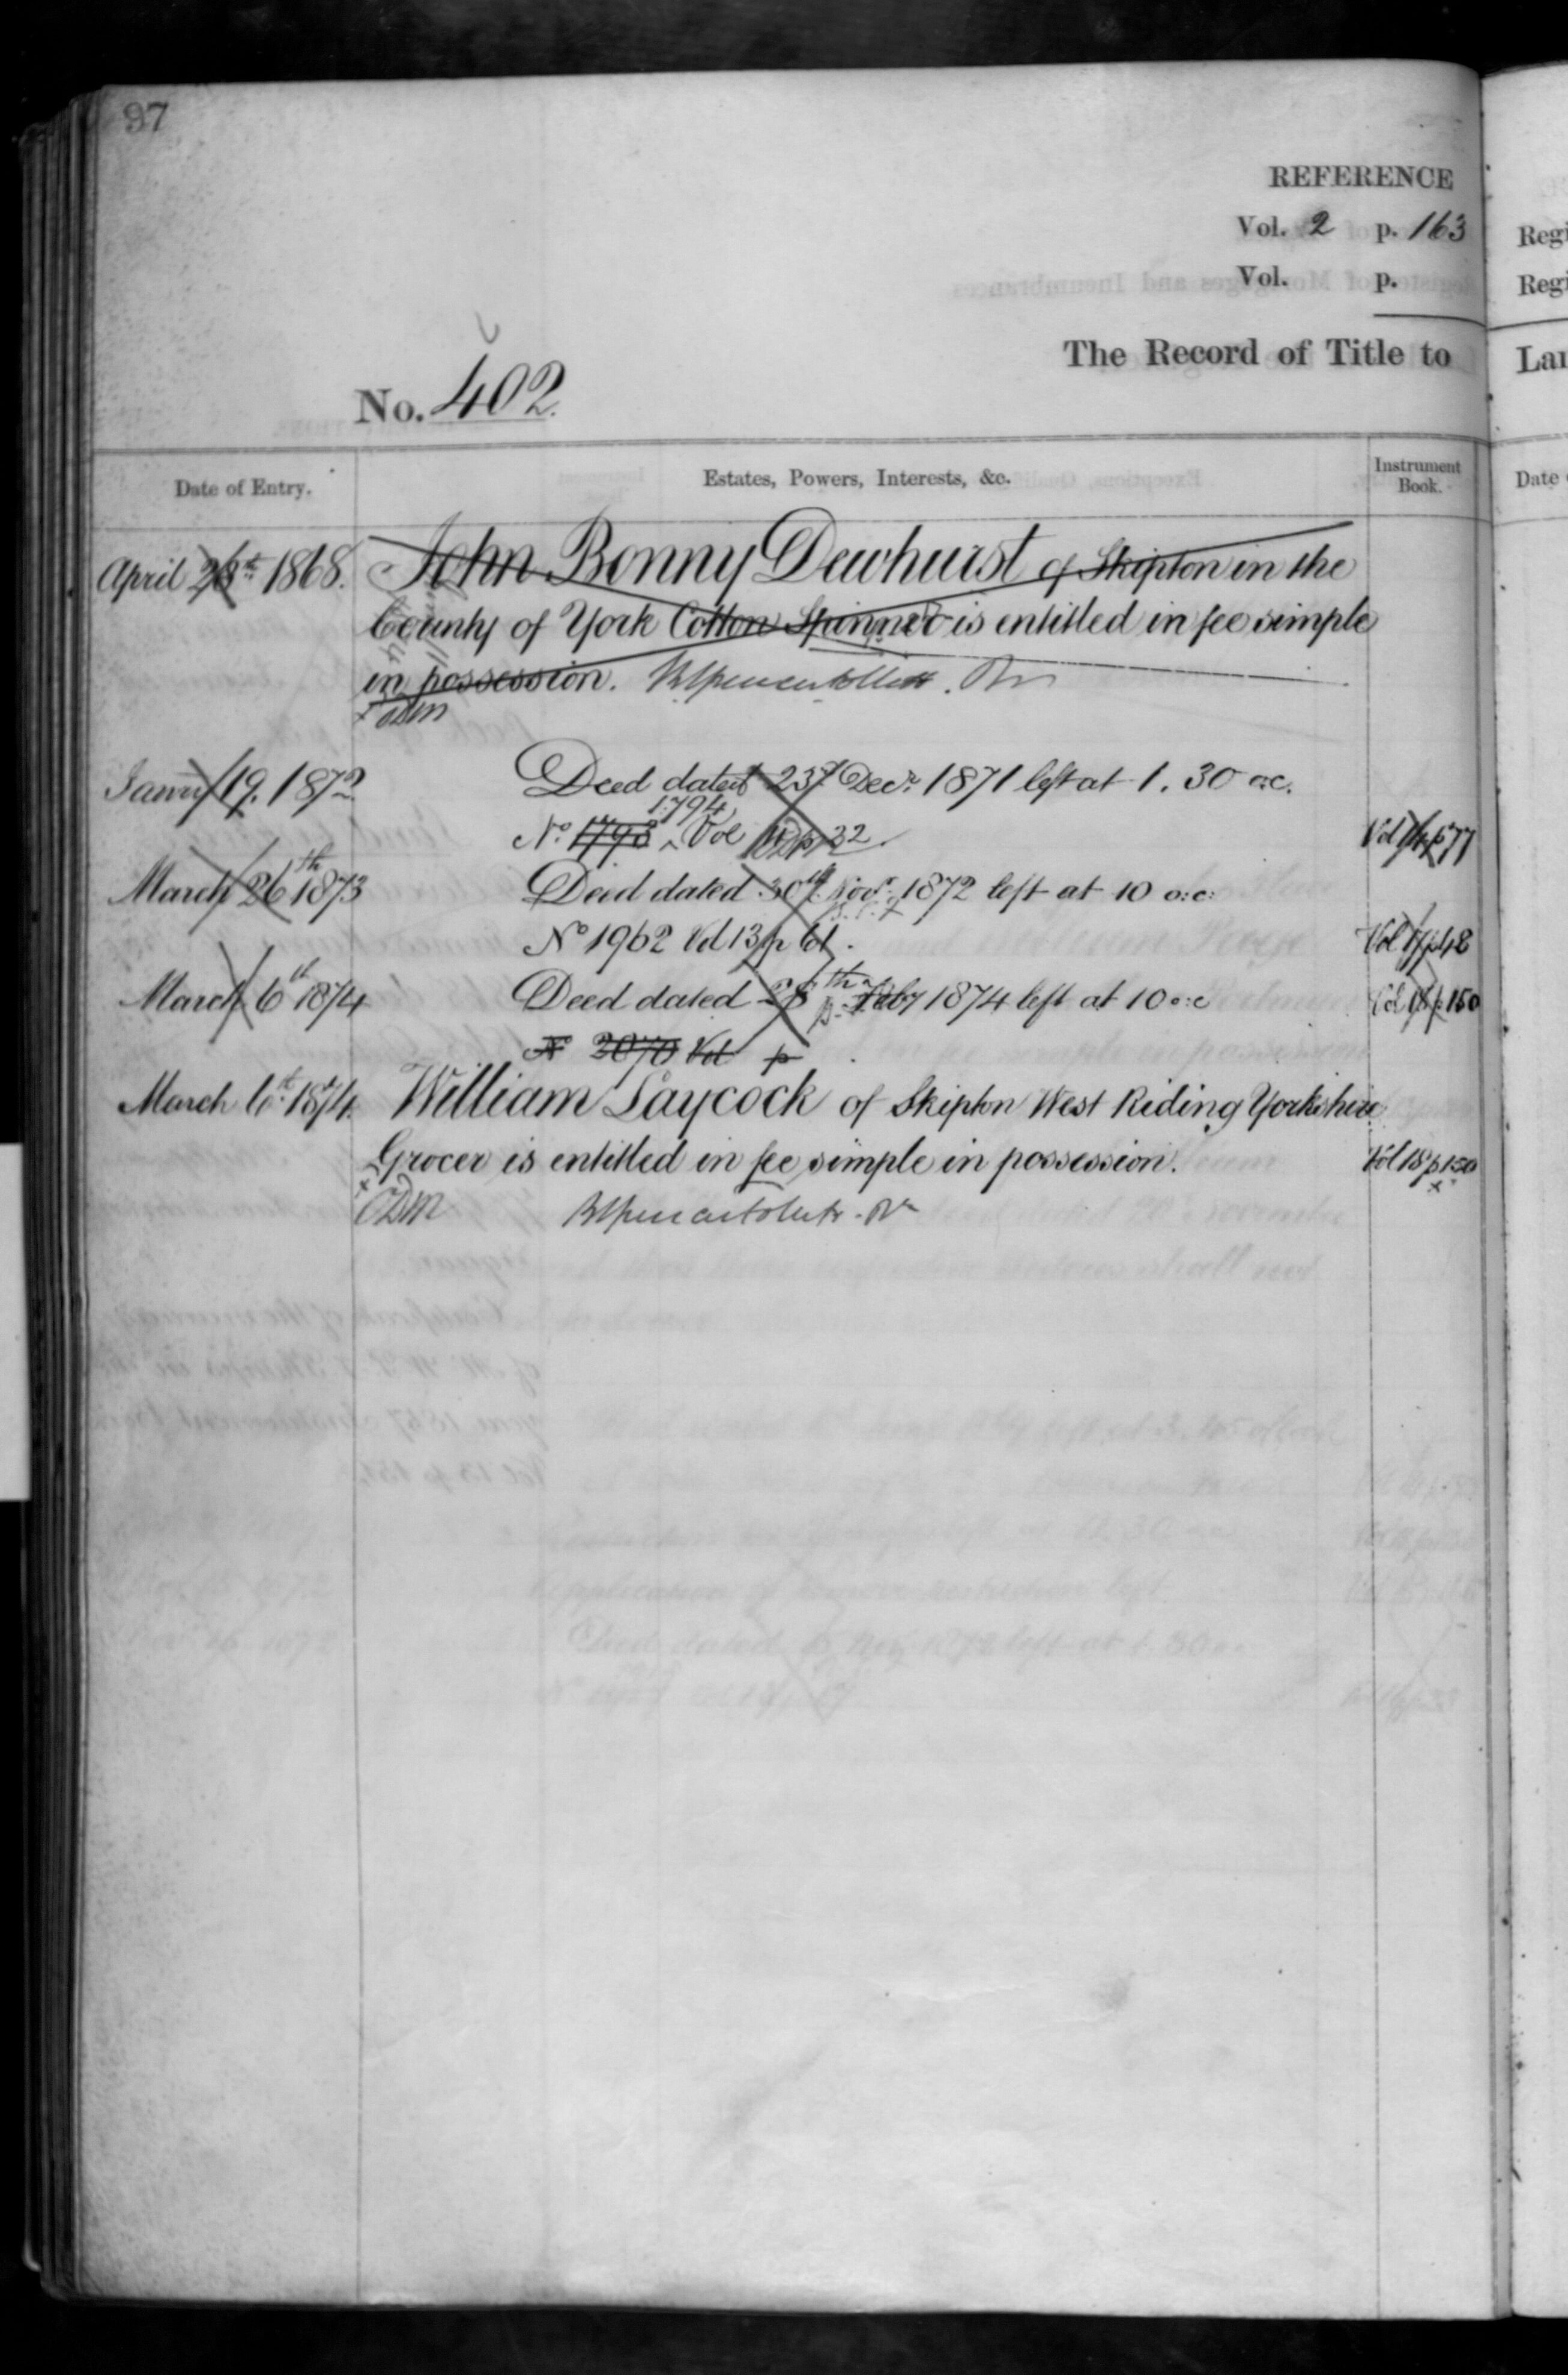 97
REFERENCE
Vol. 2 p. 163
Vol. p.
The Record of Title to
No. 402.
Date of Entry. Estates, Powers, Interests, &c. Instrument Book.
April 28th 1868. John Bonny Dewhurst of Skipton in the
County of York Cotton Spinner is entitled in fee simple
in possession.
Janry 19. 1872 Deed dated 23d Decr 1871 left at 1.30 o:c.
1794
No 1793 ^ Vol 12 p 32. Vol 14 p 77
March 26th 1873 Deed dated 30th Novr 1872 left at 10 o:c:
No 1962 Vol 13 p 61. Vol 17 p 48
March 6th 1874 Deed dated 28th Feby 1874 left at 10 o:c Vol 18 p 150
No 2070 Vol p
March 6th 1874. William Laycock of Skipton West Riding Yorkshire
Grocer is entitled in fee simple in possession. Vol 18 p 150
Regi
Regi
Lan
Date